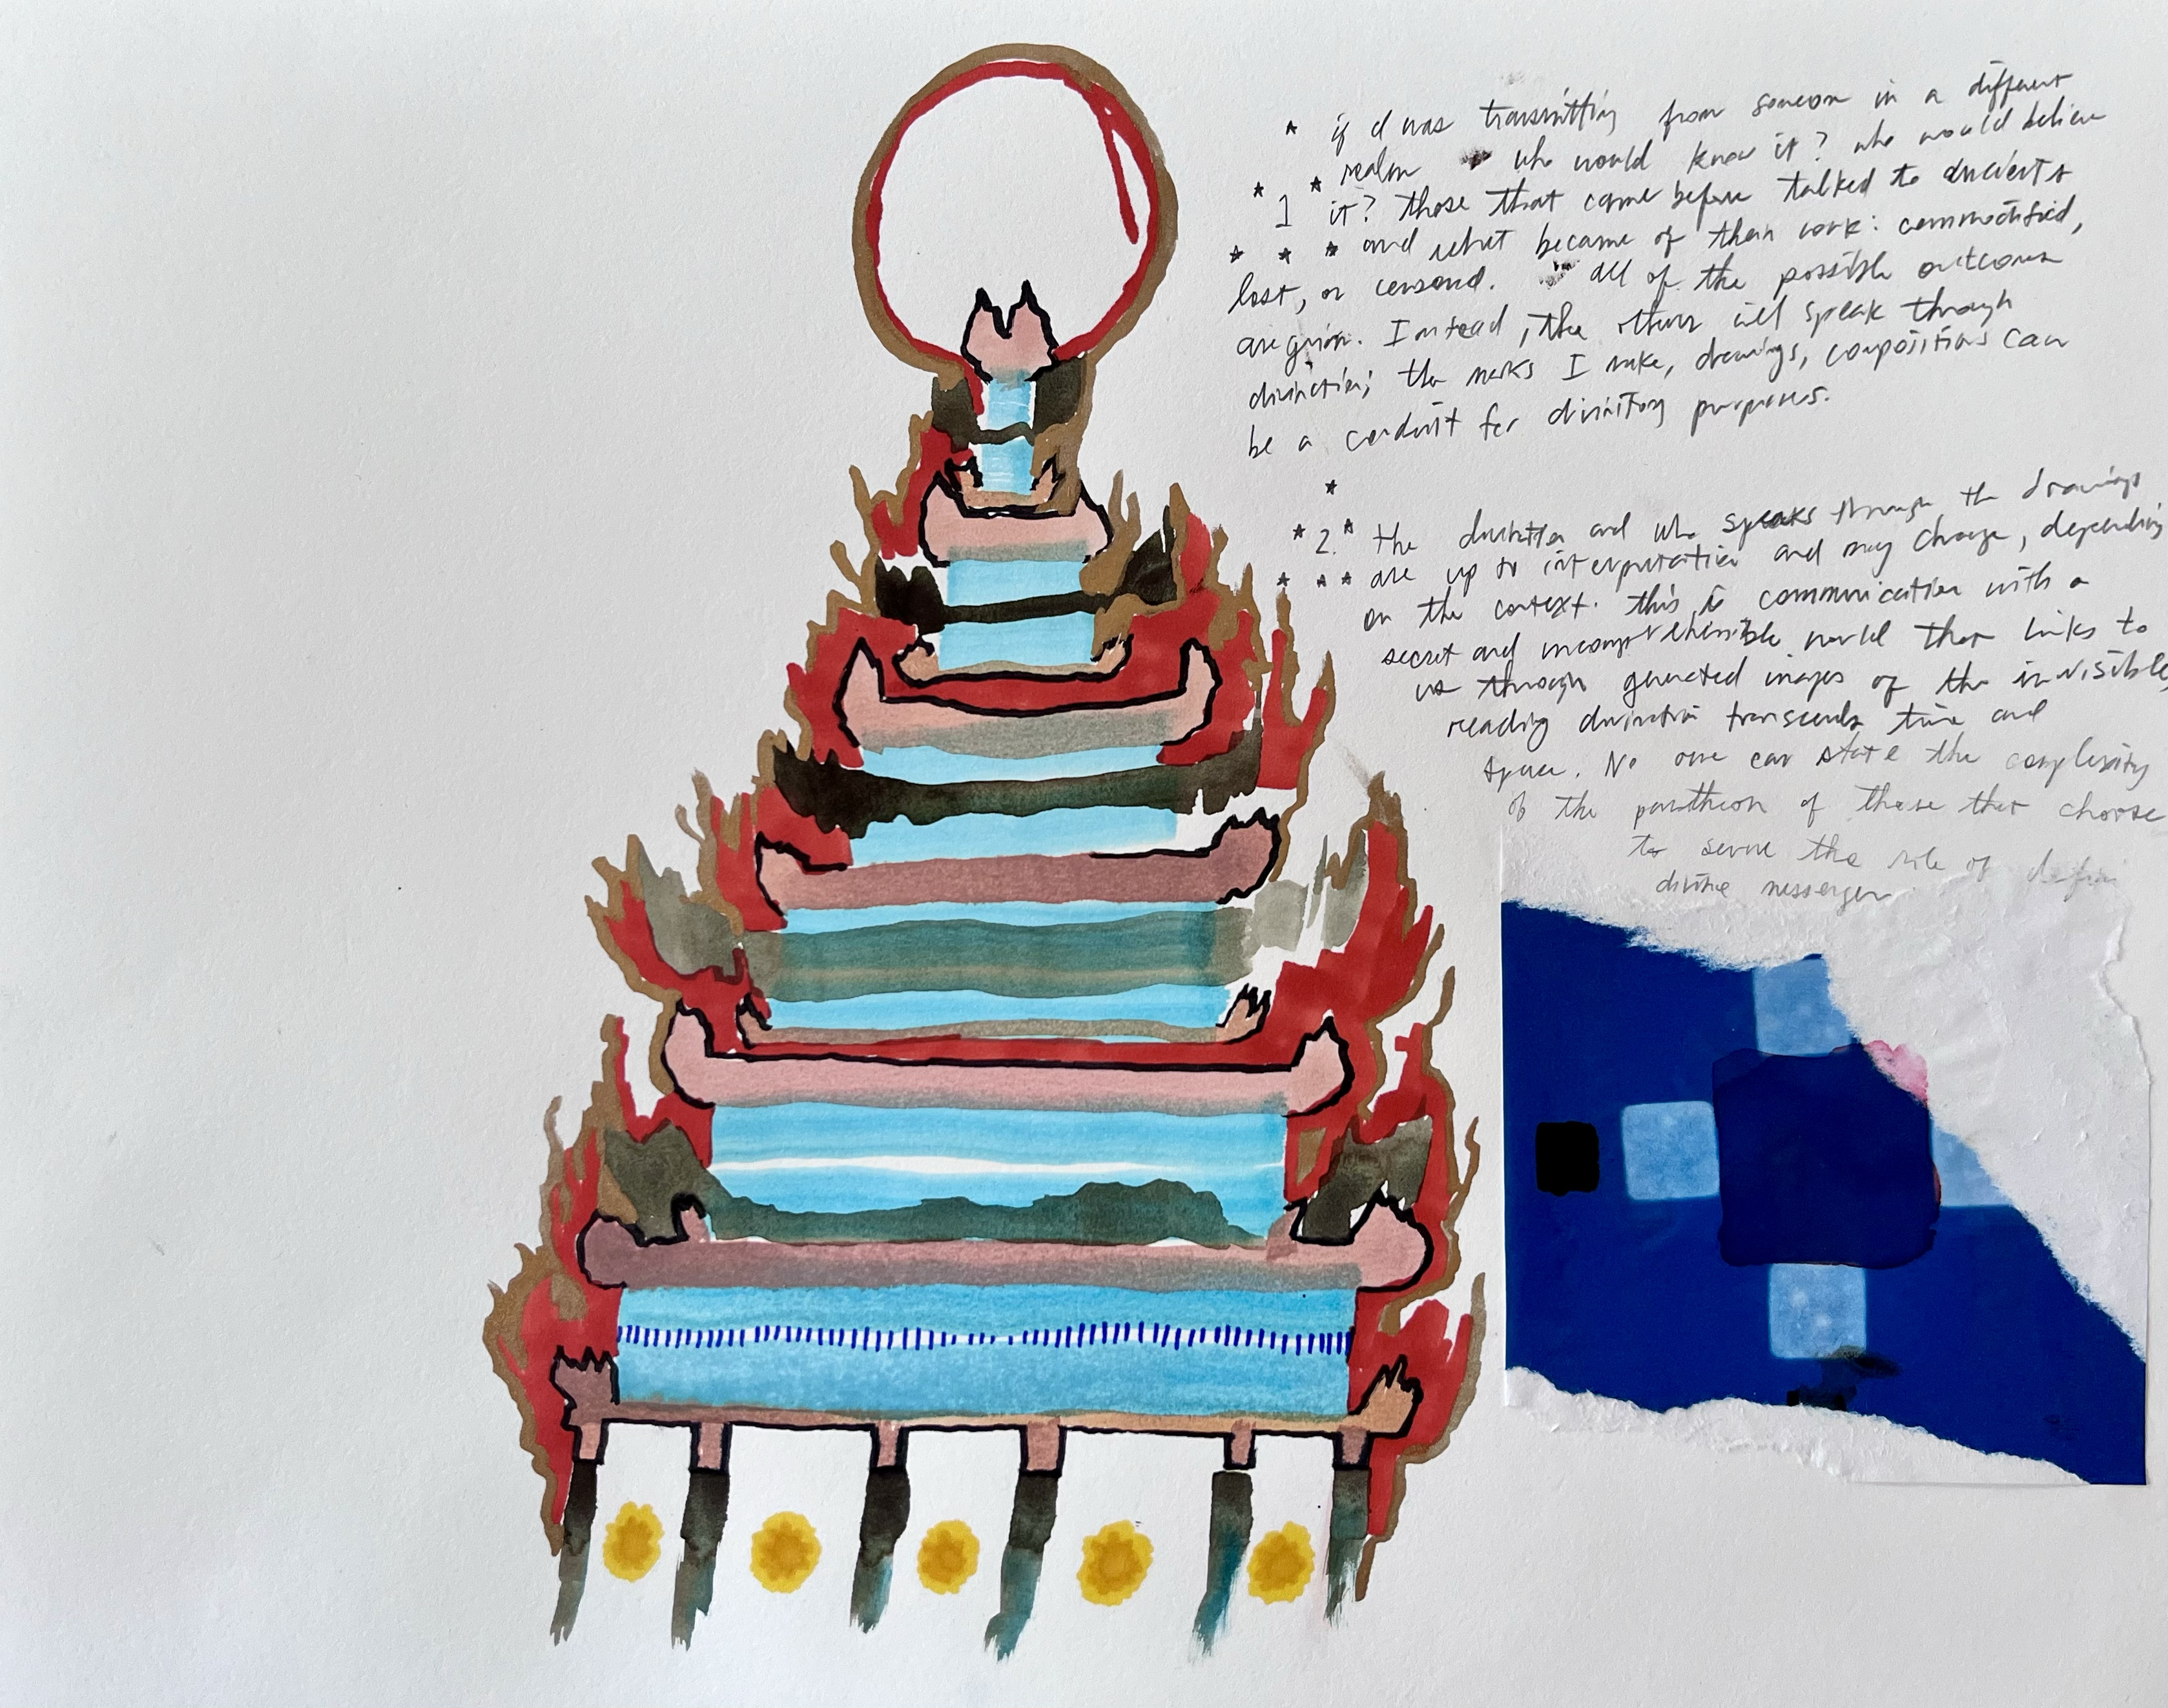 * if I was transmitting from someone in a different
realm who would know it? who would believe
* 1 * it? those that came before talked to
* * * and what became of their work: commodified,
lost, or censored. all of the possible outcomes
are given. Instead, the others will speak through
divination; the marks I make, drawings, compositions can
be a conduit for divinitory purposes.
*
* 2. * the and who speaks through the drawings
* * * are up to interpretation and may change, depending
on the context. this is communication with a
secret and incomprehensible world that links to
us through generated images of the invisible,
reading divination transcends time and
space. No one can state the complexity
of the pantheon of those that choose
to serve the role of
divine messenger